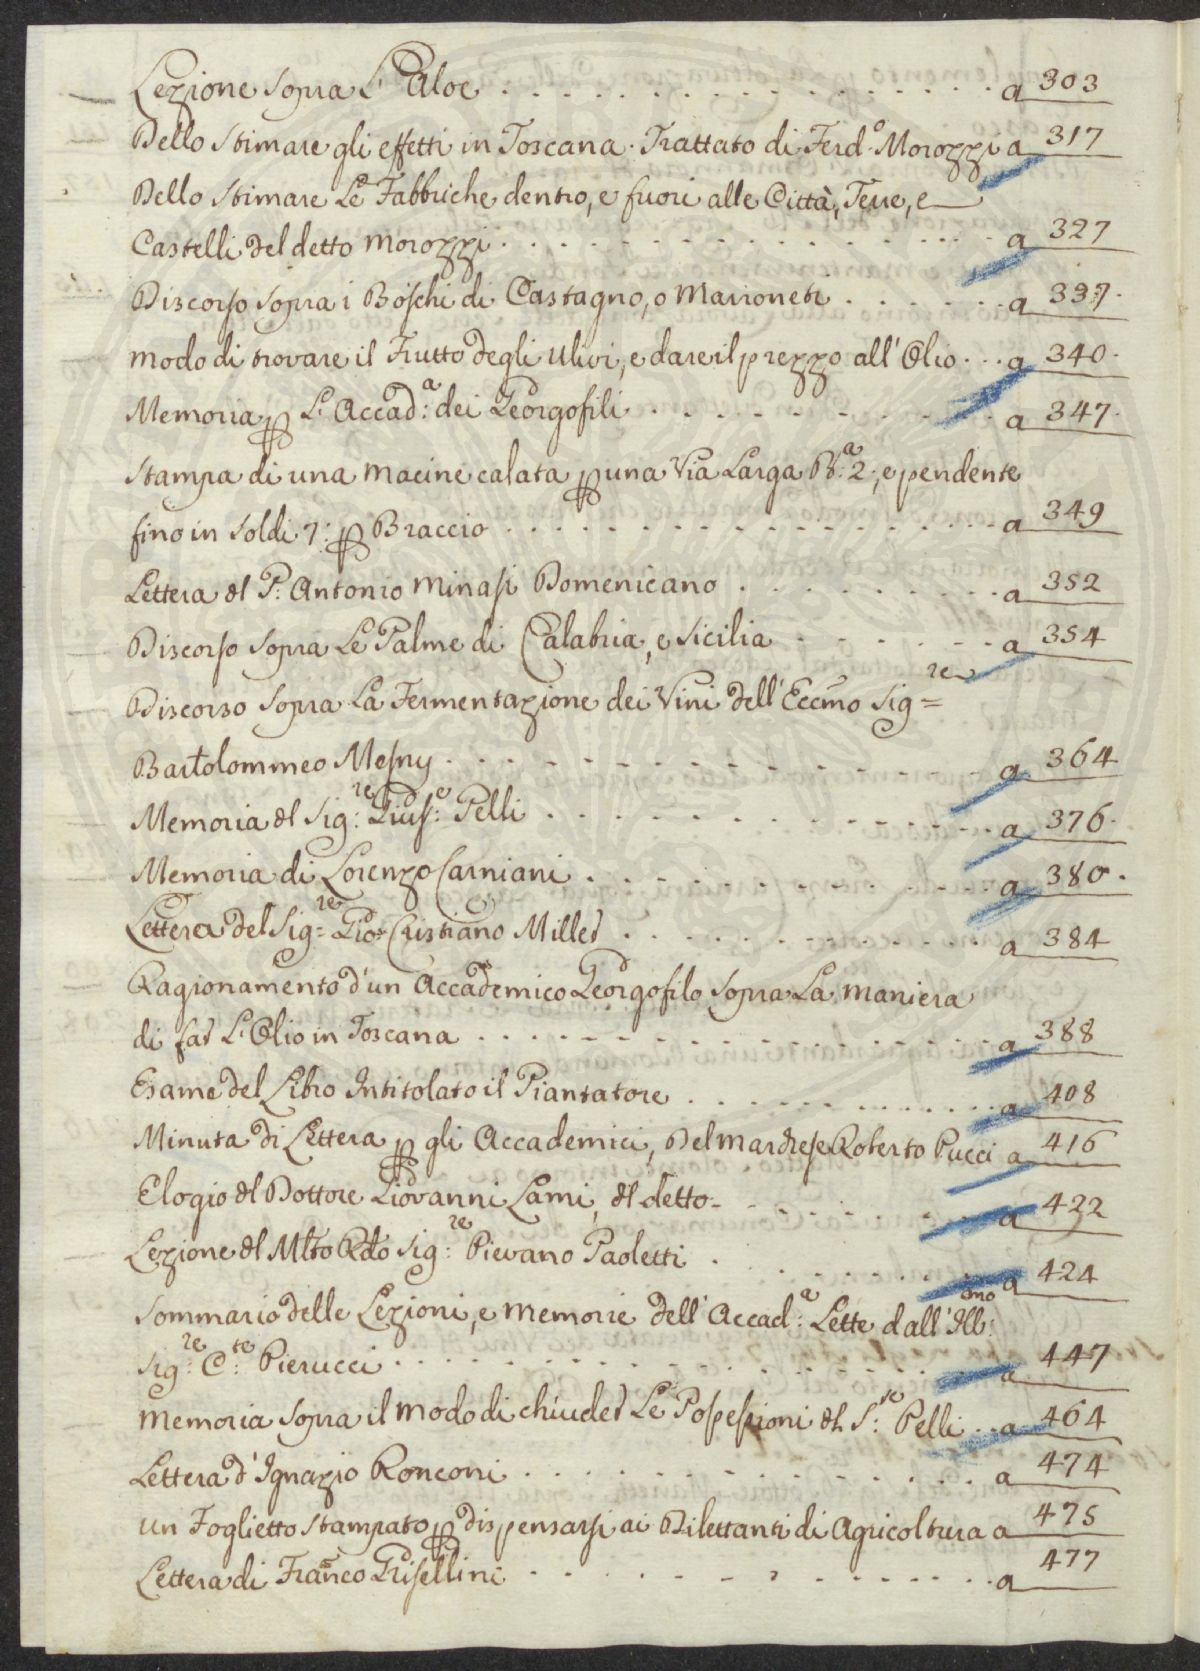 Lezione sopra L'Aloe . . . . . . . . . . . . . . . a 303
Dello Stimare gli effetti in Toscana. Trattato di Ferd.o Morozzi a 317
Dello Stimare Le Fabbriche dentro, e fuori alle Città, Terre, e
Castelli del detto Morozzi . . . . . . . . . . . . . . . a 327
Discorso sopra i Boschi di Castagno, o Marroneti . . . . . . a 337.
Modo di trovare il Frutto degli Ulivi, e dare il prezzo all'Olio . . . a 340.
Memoria p L'Accad:a dei Georgofili . . . . . . . . . . . . a 347.
Stampa di una Macine calata p una Via Larga B:a 2, e pendente
fino in Soldi 7: p Braccio . . . . . . . . . . . . . . . a 349
Lettera dl P: Antonio Minasi Domenicano . . . . . . . . . a 352
Discorso sopra Le Palme di Calabria, e Sicilia . . . . . . . a 354
Discorso sopra La Fermentazione dei Vini dell'Eccmo Sig=re
Bartolommeo Mesny . . . . . . . . . . . . . . . a 364
Memoria dl Sig:re Gius:e Pelli . . . . . . . . . . . . . . a 376.
Memoria di Lorenzo Carniani . . . . . . . . . . . . . . a 380.
Lettera del Sig=re Gio: Cristiano Miller . . . . . . . . . . . . a 384
Ragionamento d'un Accademico Georgofilo sopra La maniera
di far L'Olio in Toscana . . . . . . . . . . . . . . . a 388
Esame del Libro Intitolato il Piantatore . . . . . . . . . . a 408
Minuta di Lettera p gli Accademici, Del Marchese Roberto Pucci a 416
Elogio dl Dottore Giovanni Lami, dl detto . . . . . . . . a 422
Lezione dl Mlto Rdo Sig:re Pievano Paoletti . . . . . . . . a 424
Sommario delle Lezioni, e Memorie dell'Accad:a Lette dall'Ill:mo
Sig:re C:te Pierucci . . . . . . . . . . . . . . . a 447
Memoria sopra il modo di chiuder Le Possessioni dl S:re Pelli . . a 464
Lettera d'Ignazio Ronconi . . . . . . . . . . . . . . . a 474
Un Foglietto Stampato p dispensarsi ai Dilettanti di Agricoltura a 475
Lettera di Franco Griselline . . . . . . . . . . . . . . a 477